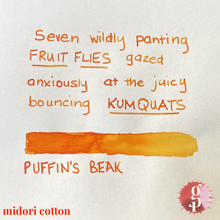 Seven wildly panting
FRUIT FLIES gazed
anxiously at the juicy
bouncing KUMQUATS
PUFFIN'S BEAK
midori cotton
gp